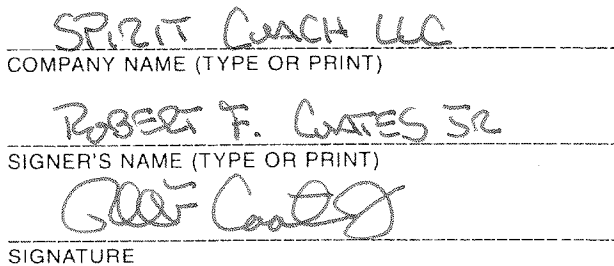 SPIRIT COACH LLC
COMPANY NAME (TYPE OR PRINT)
ROBERT F. COATES JR
SIGNER'S NAME (TYPE OR PRINT)
Robt F Coates Jr
SIGNATURE